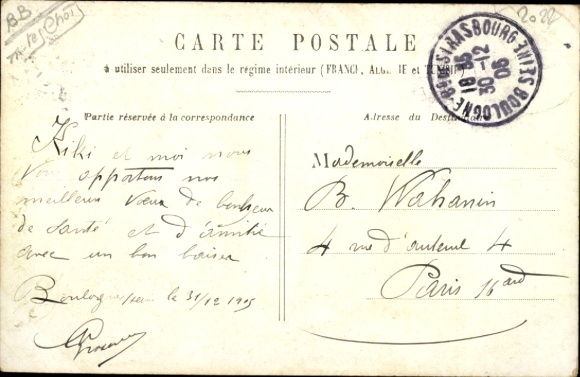 BB
Choi
20 22
CARTE POSTALE
à utiliser seulement dans le régime intérieur (FRANCE, ALGÉRIE et TUNISIE)
BOULOGNE-S-SEINE R. DE STRASBOURG SEINE
18 55
30-12
05
Partie réservée à la correspondance
Adresse du Destinataire
Kiki et moi nous
vous apportons nos
meilleurs vœux de bonheur
de santé et d'amitié
avec un bon baiser
Boulogne s/seine le 31/12 1905
Mademoiselle
B. Wahanin
4 rue d'auteuil 4
Paris 16 ard